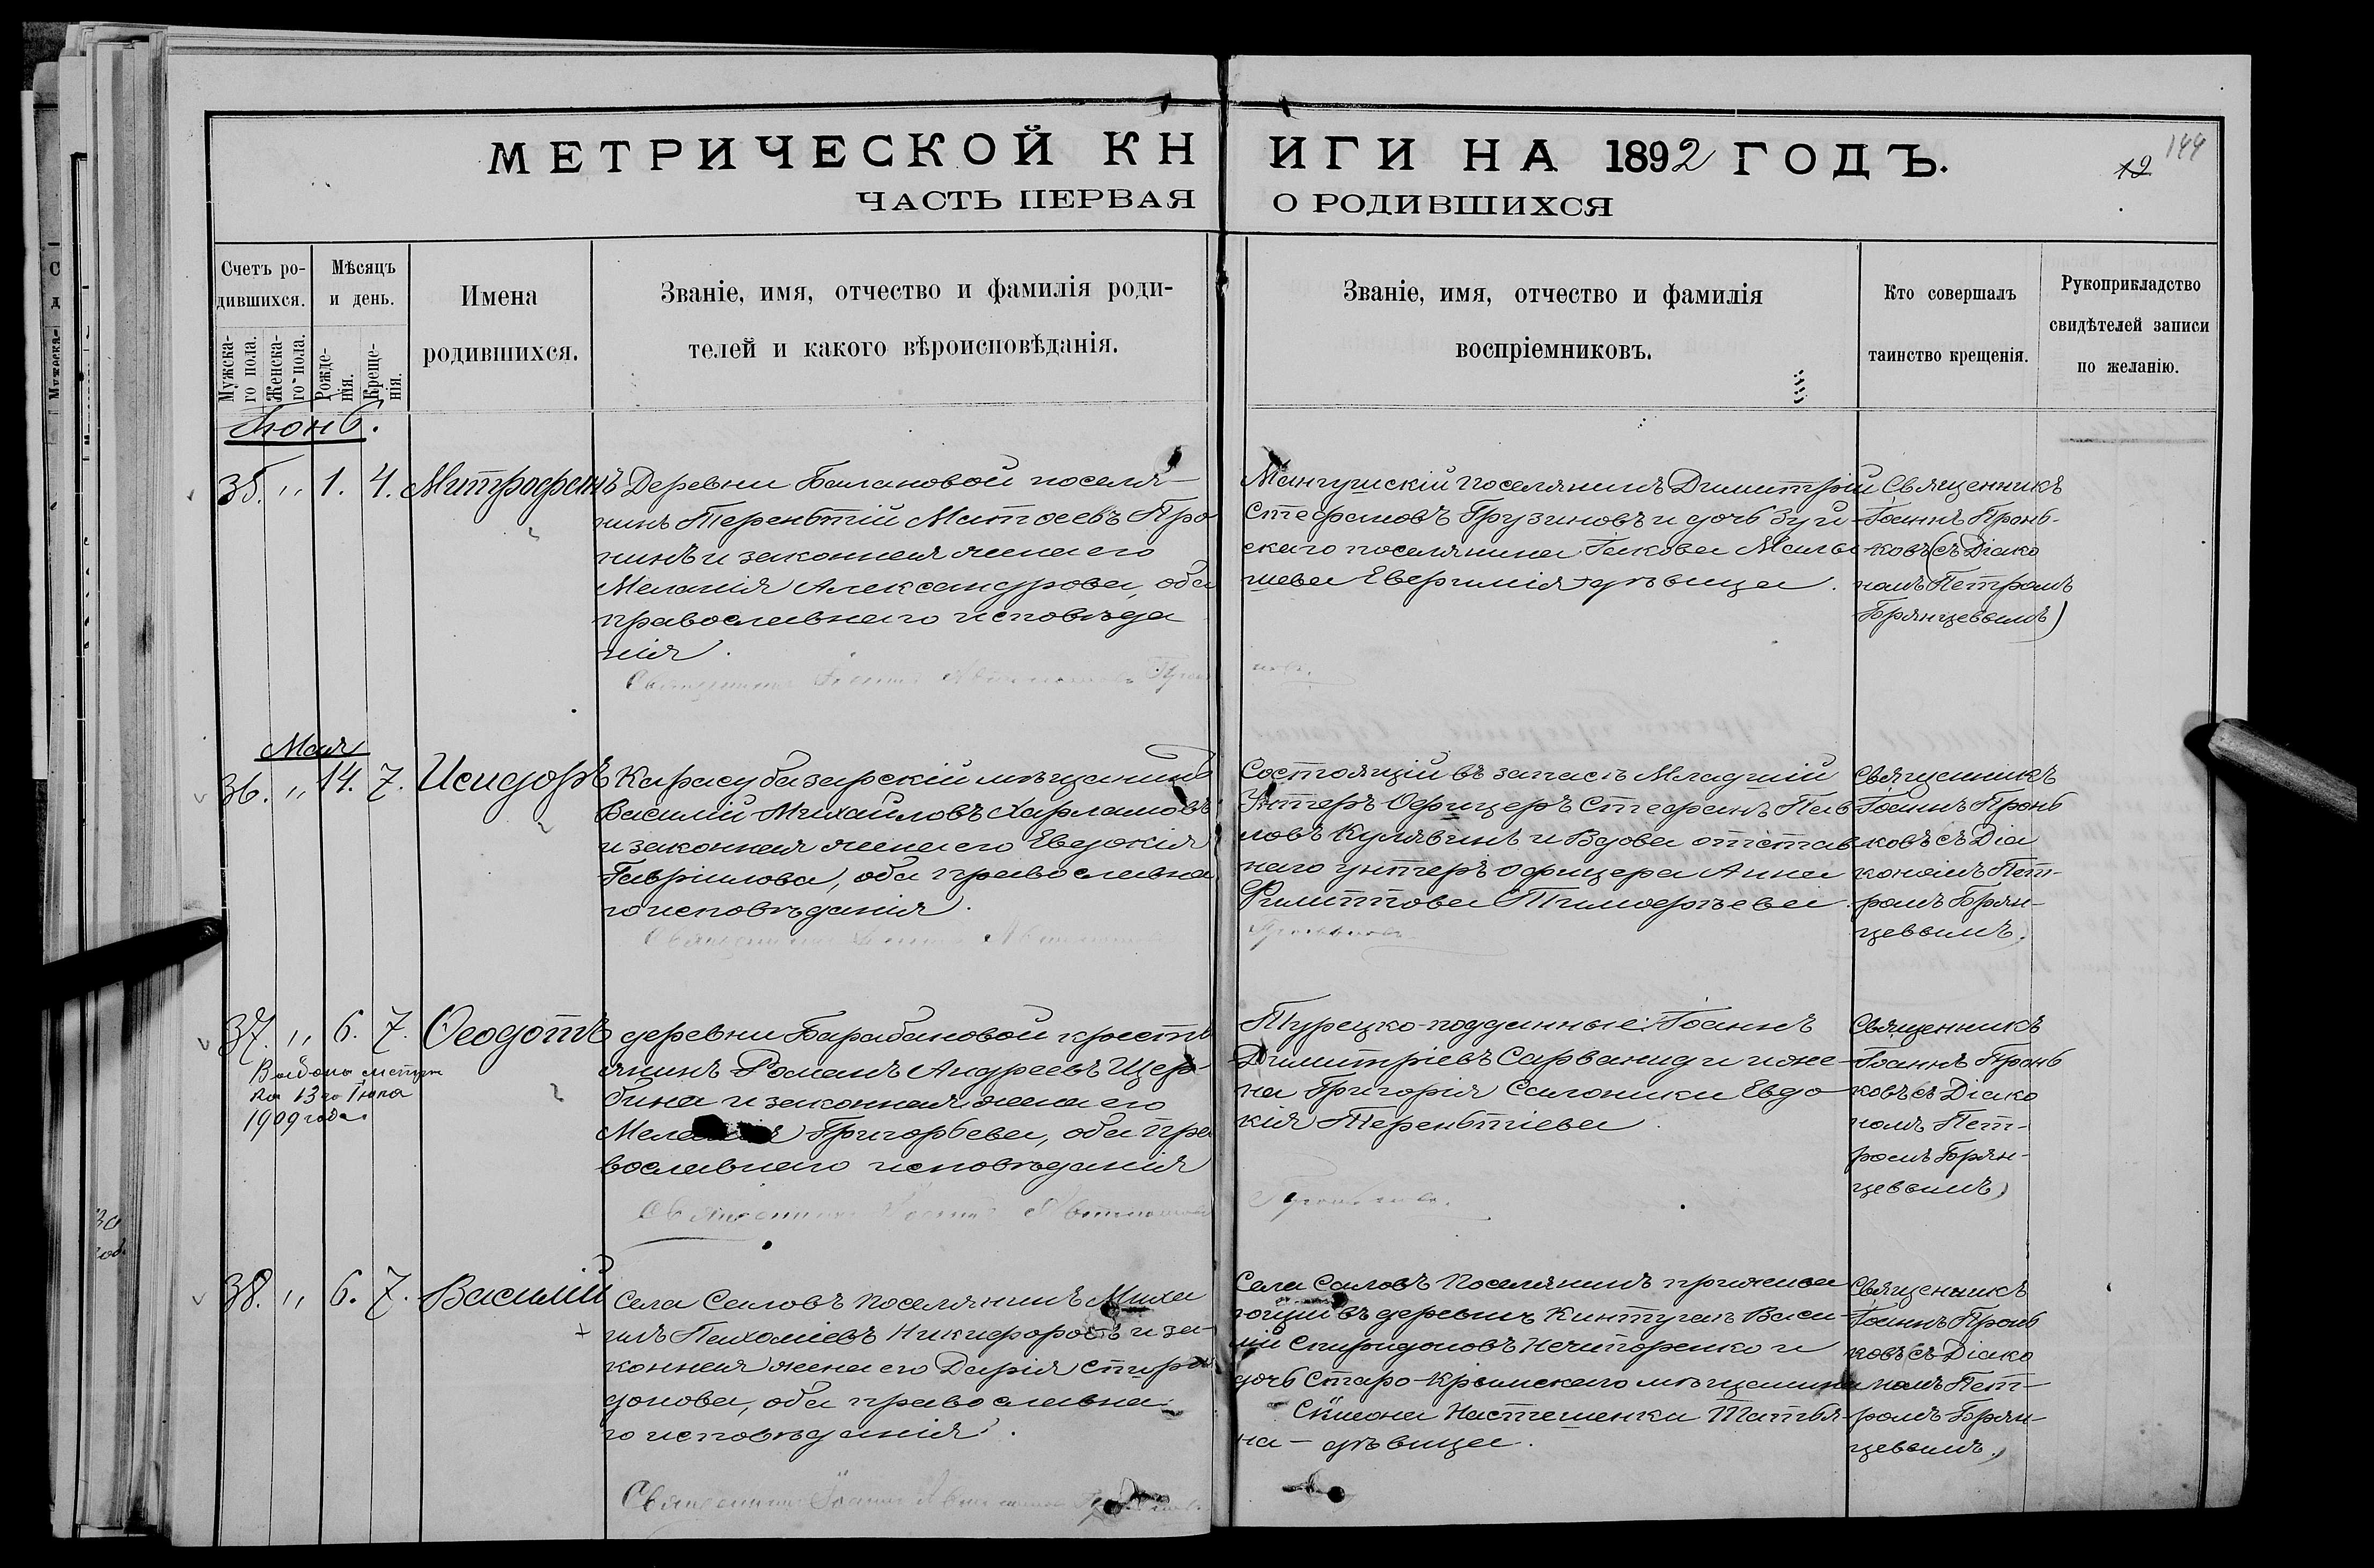 МЕТРИЧЕСКОЙ КНИГИ НА 1892 ГОДЪ.
ЧАСТЬ ПЕРВАЯ О РОДИВШИХСЯ
12
144
Счетъ ро-
дившихся.
Мужска-
го пола.
Женска-
го пола.
Мѣсяцъ
и день.
Рожде-
нія.
Креще-
нія.
Имена
родившихся.
Званіе, имя, отчество и фамилія роди-
телей и какого вѣроисповѣданія.
Званіе, имя, отчество и фамилія
воспріемниковъ.
Кто совершалъ
таинство крещенія.
Рукоприкладство
свидѣтелей записи
по желанію.
Іюнь.
35. " 1. 4. Митрофанъ
Деревни Балановой поселя-
нинъ Терентій Матѳеевъ Про
нинъ и законная жена его
Меланія Александрова, оба
православнаго исповѣда
нія.
Священникъ Іоаннъ
Мангушскій поселянинъ Димитрій
Стефановъ Грузиновъ и дочь Зуй-
скаго поселянина Іакова Малы
шева Евфимія дѣвица.
Священникъ
Іоаннъ Пронь-
ковъ (съ Діако
номъ Петромъ
Брянцевымъ)
Мая
36. " 14. 7. Исидоръ
Карасубазарскій мѣщанинъ
Василій Михайловъ Харламовъ
и законная жена его Евдокія
Гавріилова, оба православна
го исповѣданія.
Священникъ Іоаннъ
Состоящій въ запасѣ Младшій
Унтеръ-Офицеръ Стефанъ Пав
ловъ Кулявинъ и Вдова отстав
наго унтеръ офицера Анна
Филиппова Тимофѣева.
Священникъ
Іоаннъ Пронь
ковъ съ Діа
кономъ Пет-
ромъ Брян-
цевымъ.
37. " 6. 7. Ѳеодотъ
1909 года.
деревни Барабановой кресть
янинъ Романъ Андреевъ Щер-
бина и законная жена его
Григорьева, оба пра
вославнаго исповѣданія
Священникъ Іоаннъ
Турецко-подданные: Іоаннъ
Димитріевъ Сарваниди и же-
на Григорія Салоники Евдо
кія Терентіева.
Священникъ
Іоаннъ Пронь
ковъ съ Діако
номъ Пет-
ромъ Брян-
цевымъ)
38. " 6. 7. Василій
Села Саловъ поселянинъ Миха
илъ Пахоміевъ Никифоровъ и за-
конная жена его Дарія Спири
донова, оба православна
го исповѣданія.
Священникъ Іоаннъ
Села Саловъ поселянинъ прожива
ющій въ деревнѣ Кинтуганъ Васи-
лій Спиридоновъ Нечипоренко и
дочь Старо-Крымскаго мѣщанина
Симона Татья-
на - дѣвица.
Священникъ
Іоаннъ Пронь
ковъ съ Діако
номъ Пет-
ромъ Брян-
цевымъ.)